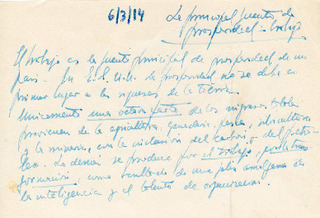 6/3/14
La principal fuente de
prosperidad - trabajo
El trabajo es la fuente principal de prosperidad de un
país. En E.E. U.U. la prosperidad no se debe en
primer lugar a las riquezas de la tierra.
Unicamente una octava parte de los ingresos totales
provienen de la agricultura, ganadería, pesca, silvicultura
y la minería, con la inclusión del carbón y del petró-
leo. Lo demás se produce por el trabajo,
como resultado de una feliz amalgama de
la inteligencia y el talento de organización.